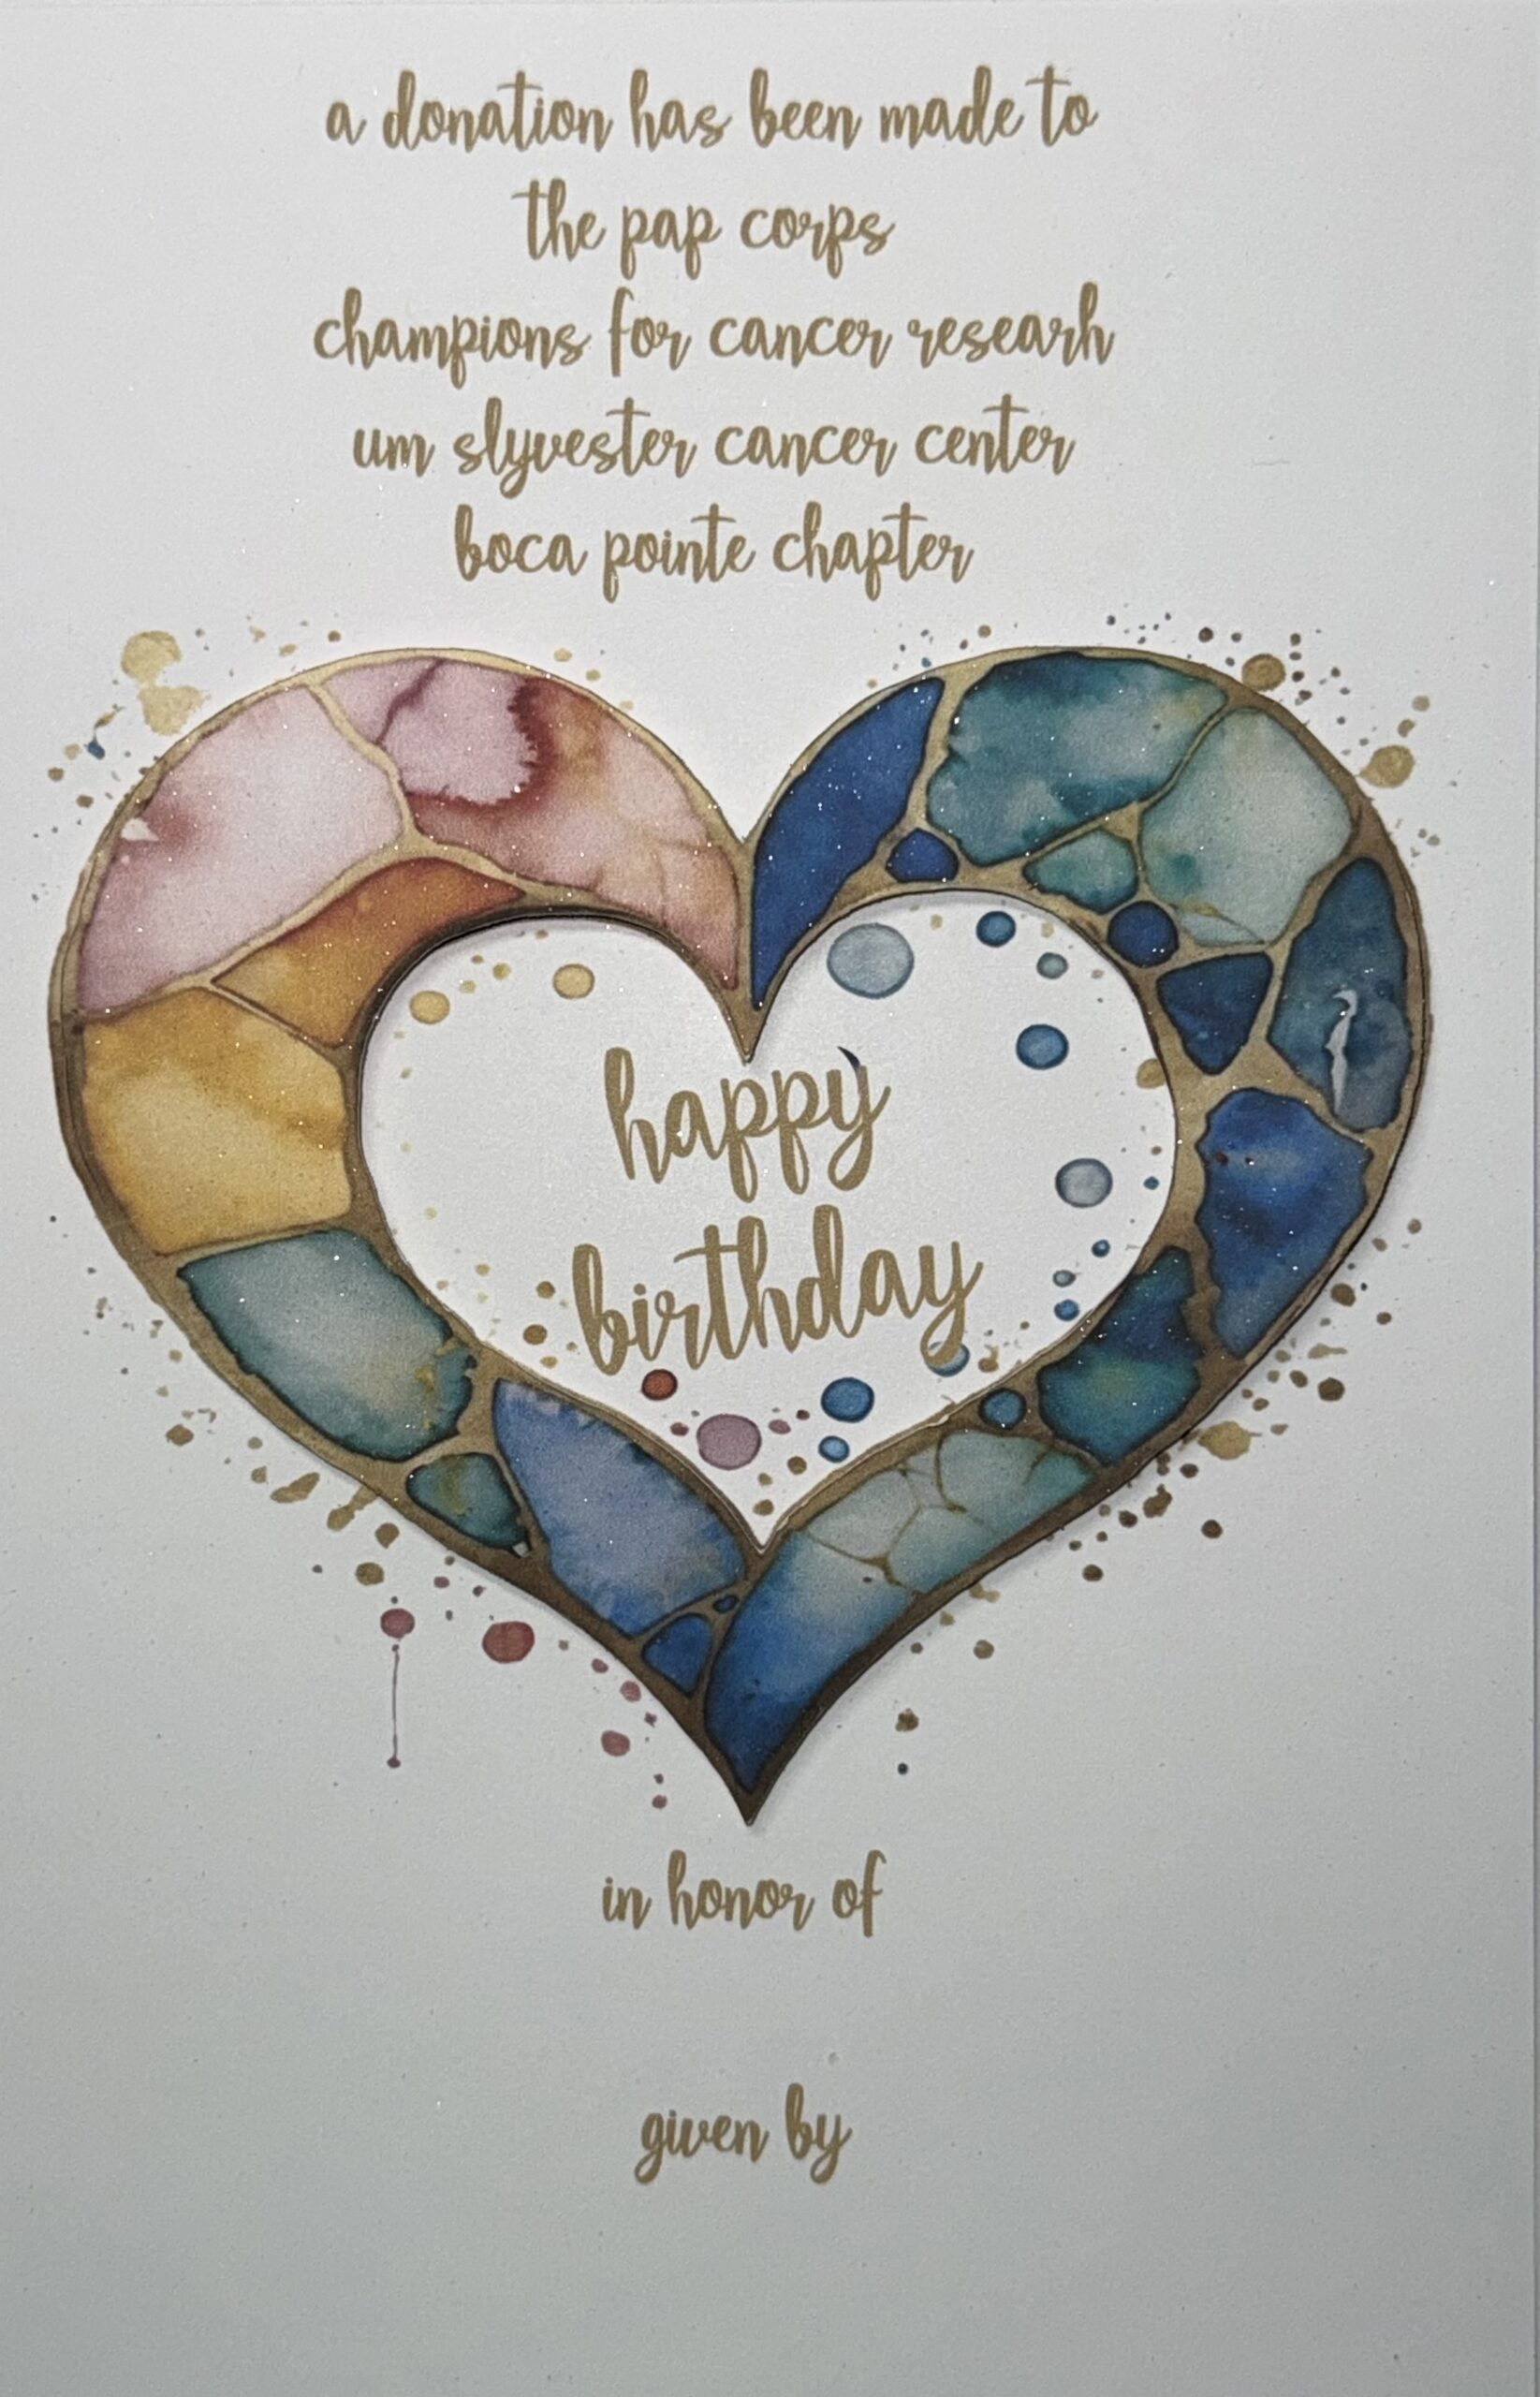 a donation has been made to
the pap corps
champions for cancer researh
um slyvester cancer center
boca pointe chapter
happy
birthday
in honor of
given by